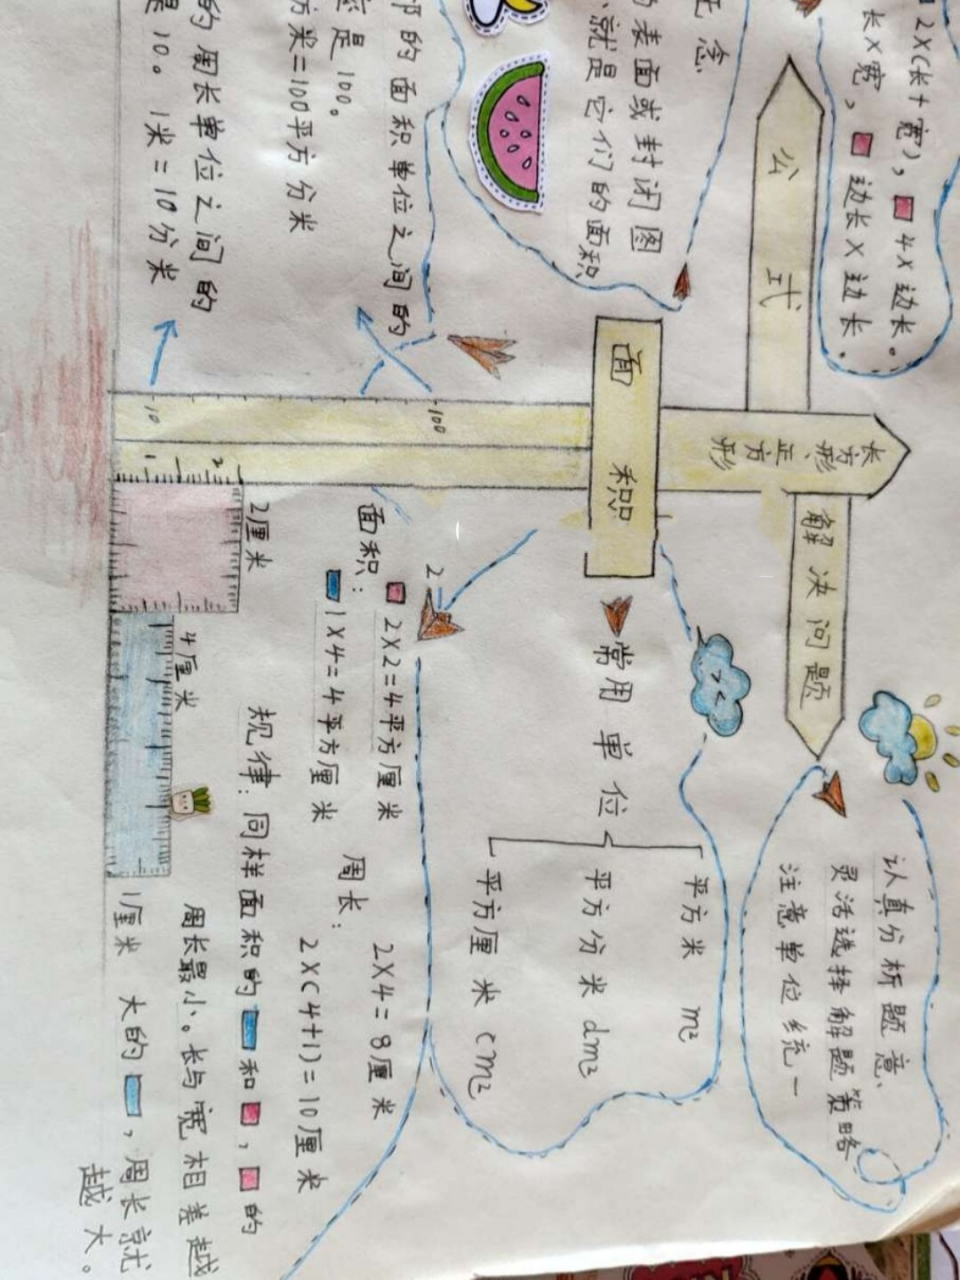 2×(长+宽), 4×边长。
长×宽, 边长×边长.
公式
长方形、正方形
解决问题
认真分析题意、
灵活选择解题策略
注意单位统一
念
的表面或封闭图
就是它们的面积
面积
常用单位
平方米 m²
平方分米 dm²
平方厘米 cm²
的面积单位之间的
是100。
方米=100平方分米
的周长单位之间的
是10。1米=10分米
100
10
1 2
2
面积:
2×2=4平方厘米
1×4=4平方厘米
周长:
2×4=8厘米
2×(4+1)=10厘米
规律:同样面积的 和 , 的
周长最小。长与宽相差越
大的 ,周长就
越大。
2厘米
4厘米
1厘米